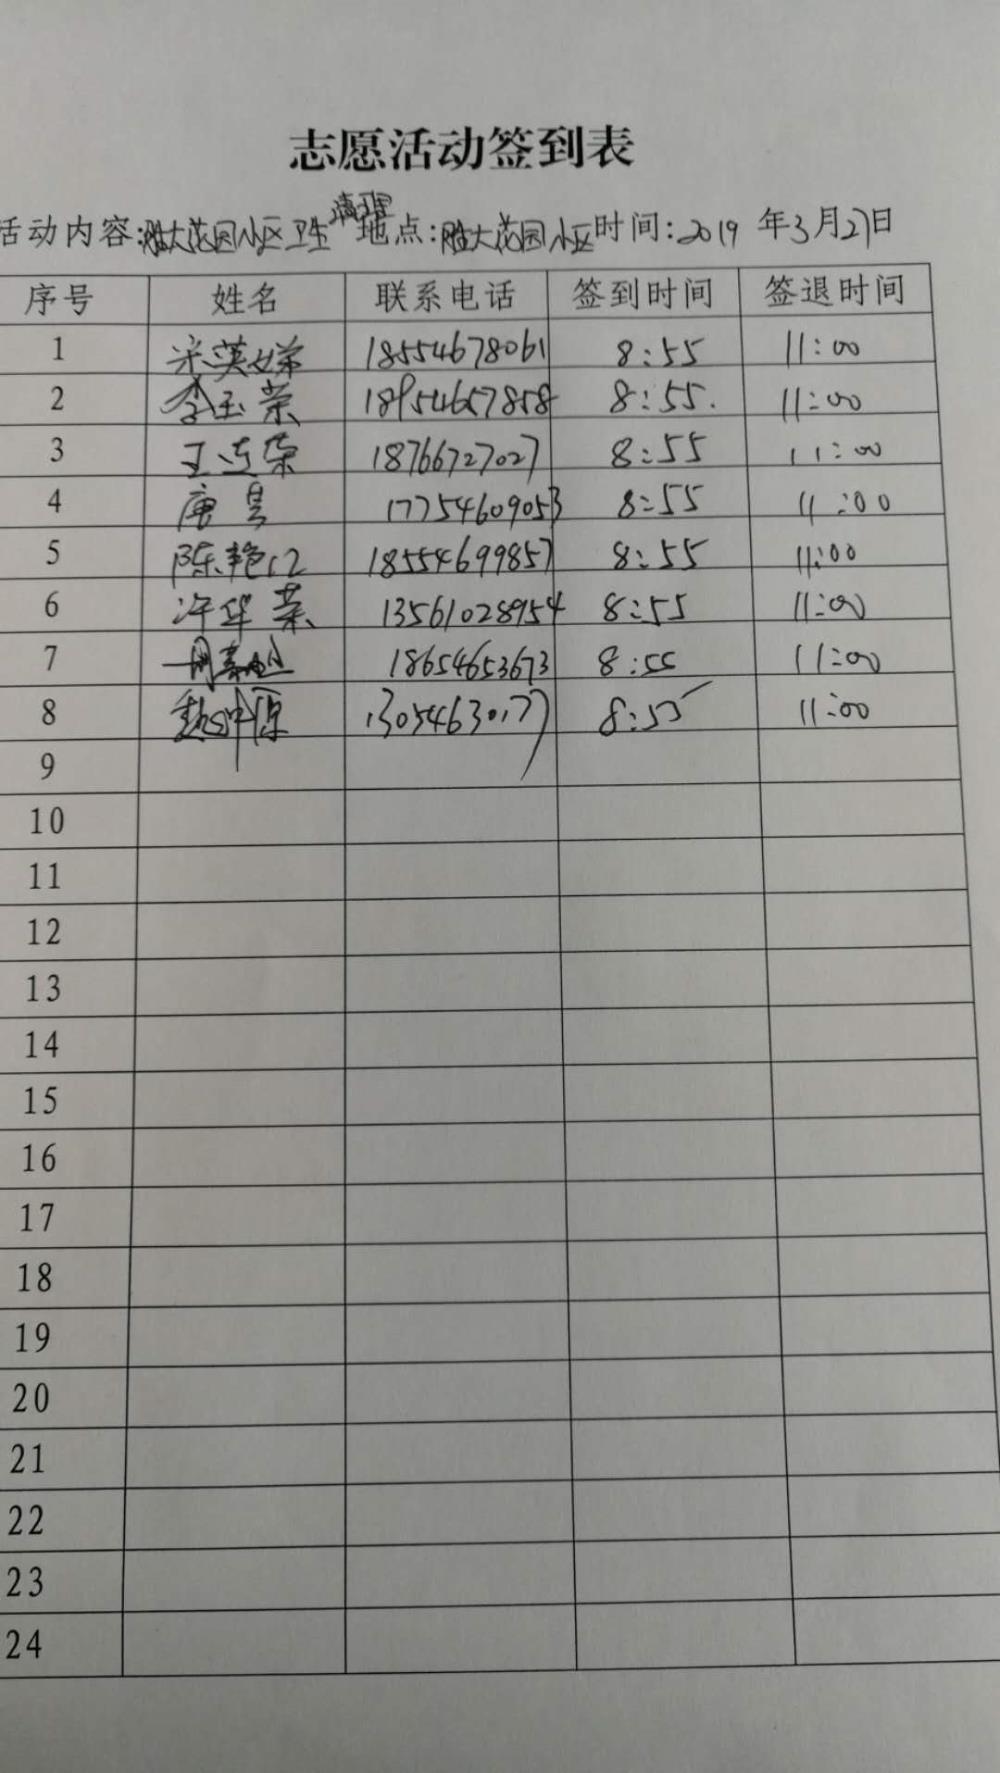 志愿活动签到表
活动内容:胜大花园小区卫生清理 地点:胜大花园小区 时间:2019年3月27日
序号 姓名 联系电话 签到时间 签退时间
1 英娣 18554678061 8:55 11:00
2 李玉荣 18954657858 8:55. 11:00
3 王连荣 18766727027 8:55 11:00
4 唐昊 17754609053 8:55 11:00
5 陈艳红 18554699857 8:55 11:00
6 许华荣 13561028954 8:55 11:00
7 周 18654653673 8:55 11:00
8 赵中原 13054630177 8:55 11:00
9
10
11
12
13
14
15
16
17
18
19
20
21
22
23
24